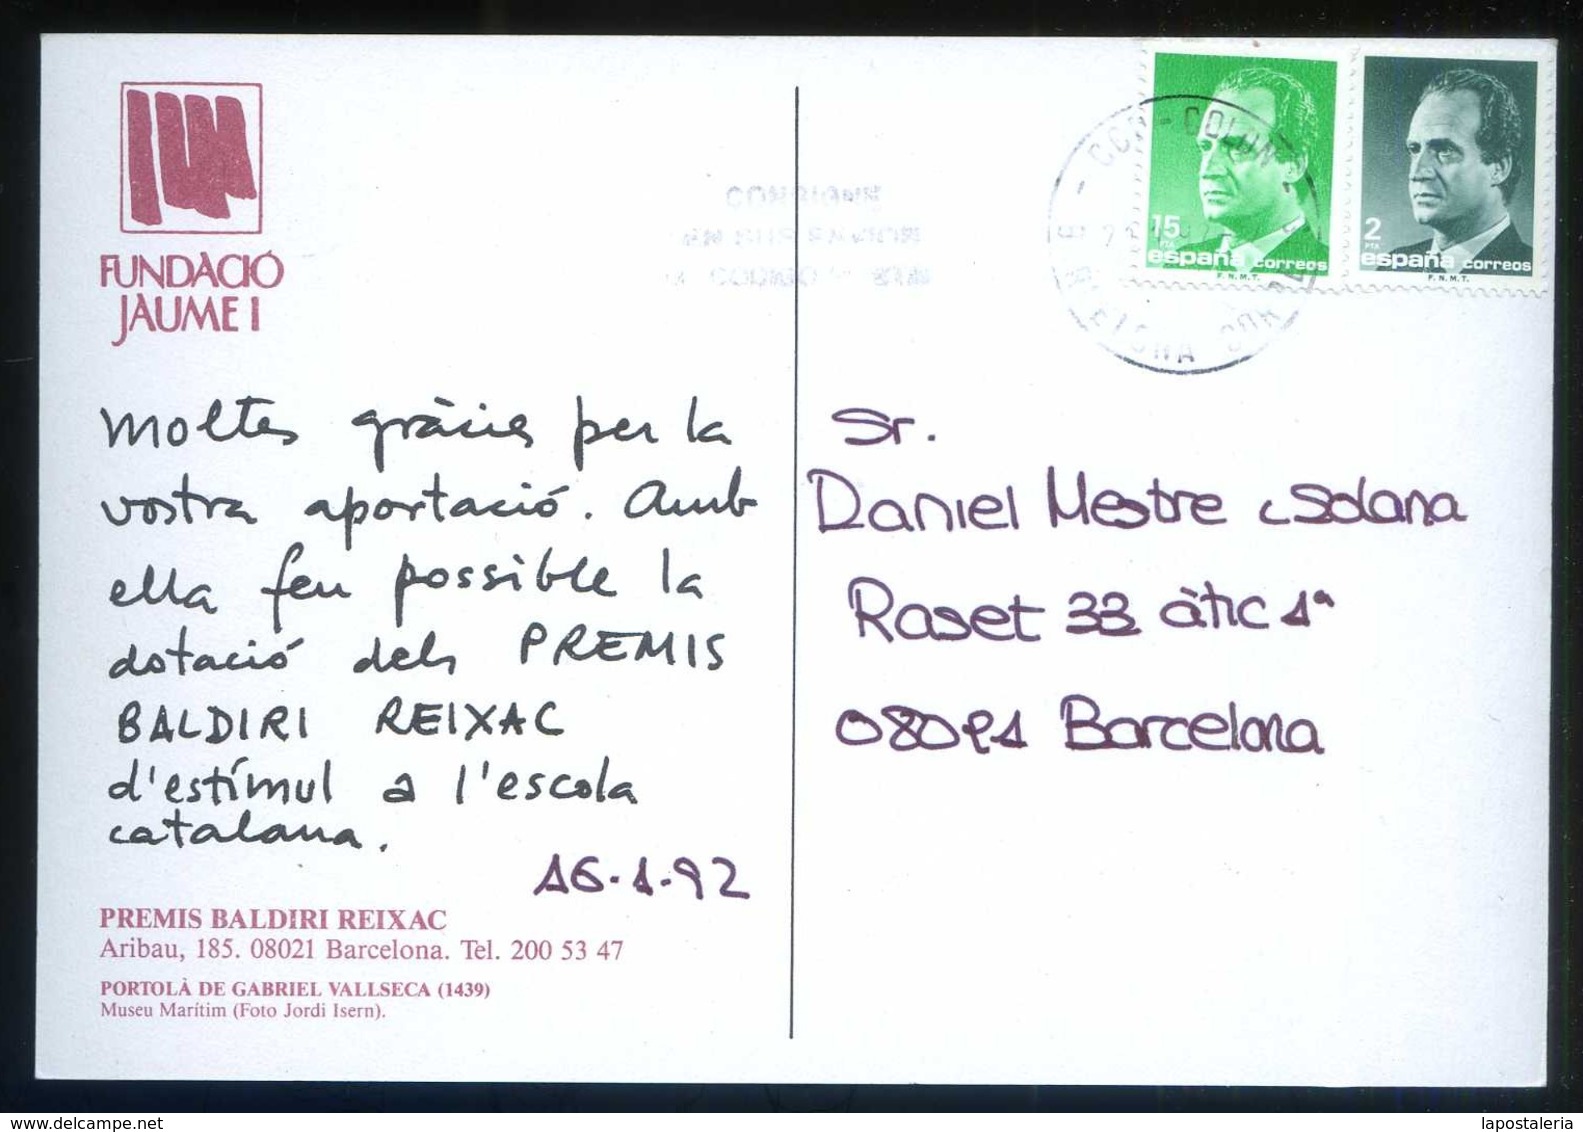 FUNDACIÓ
JAUME I
moltes gràcies per la
vostra aportació. Amb
ella feu possible la
dotació dels PREMIS
BALDIRI REIXAC
d'estímul a l'escola
catalana.
16-1-92
PREMIS BALDIRI REIXAC
Aribau, 185. 08021 Barcelona. Tel. 200 53 47
PORTOLÀ DE GABRIEL VALLSECA (1439)
Museu Marítim (Foto Jordi Isern).
CONSIGNE
EN SUS ENVIOS
15
PTA
españa correos
F.N.M.T.
2
PTA
españa correos
F.N.M.T.
Sr.
Daniel Mestre Solana
Raset 33 àtic 1ª
08021 Barcelona
lapostaleria